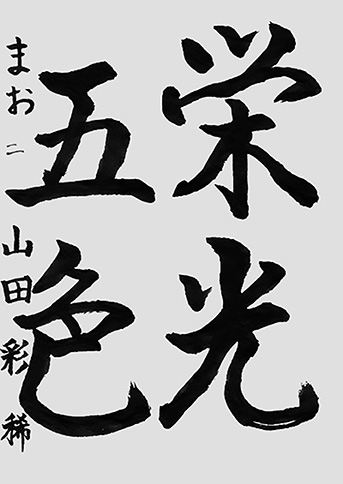 栄光
五色
まお二 山田彩稀